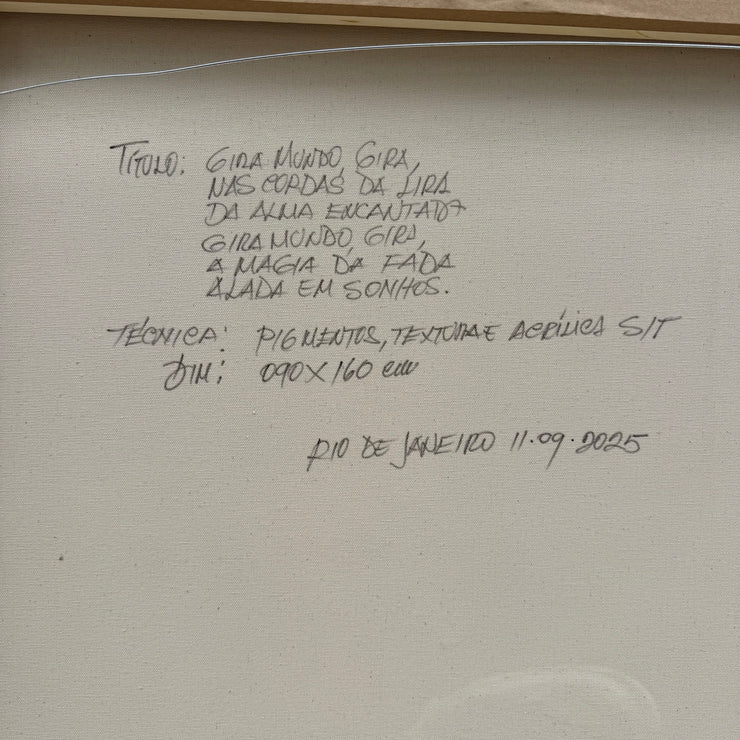 TÍTULO: GIRA MUNDO, GIRA,
NAS CORDAS DA LIRA
DA ALMA ENCANTADA
GIRA MUNDO, GIRA,
A MAGIA DA FADA
ALADA EM SONHOS.
TÉCNICA: PIGMENTOS, TEXTURA E ACRÍLICA S/T
DIM: 090X160 cm
RIO DE JANEIRO 11.09.2025